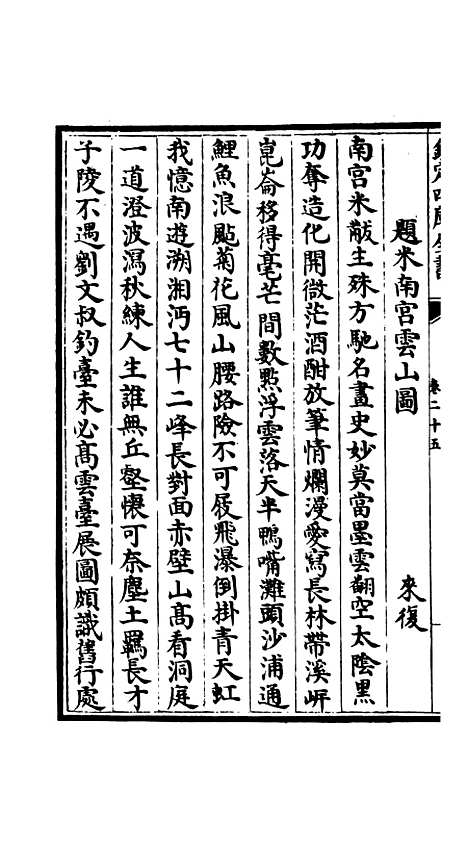 欽定四庫全書
卷二十五
題米南宫雲山圖
來復
南宫米黻生殊方馳名畫史妙莫當墨雲翻空太陰黑
功奪造化開微茫酒酣放筆情爛漫愛寫長林帶溪岸
崑崙移得毫芒間數㸃浮雲落天半鴨嘴灘頭沙浦通
鯉魚浪颭菊花風山腰路險不可屐飛瀑倒掛青天虹
我憶南遊溯湘沔七十二峰長對面赤壁山髙看洞庭
一道澄波瀉秋練人生誰無丘壑懷可奈塵土羈長才
子陵不遇劉文叔釣臺未必髙雲臺展圖頗識舊行處